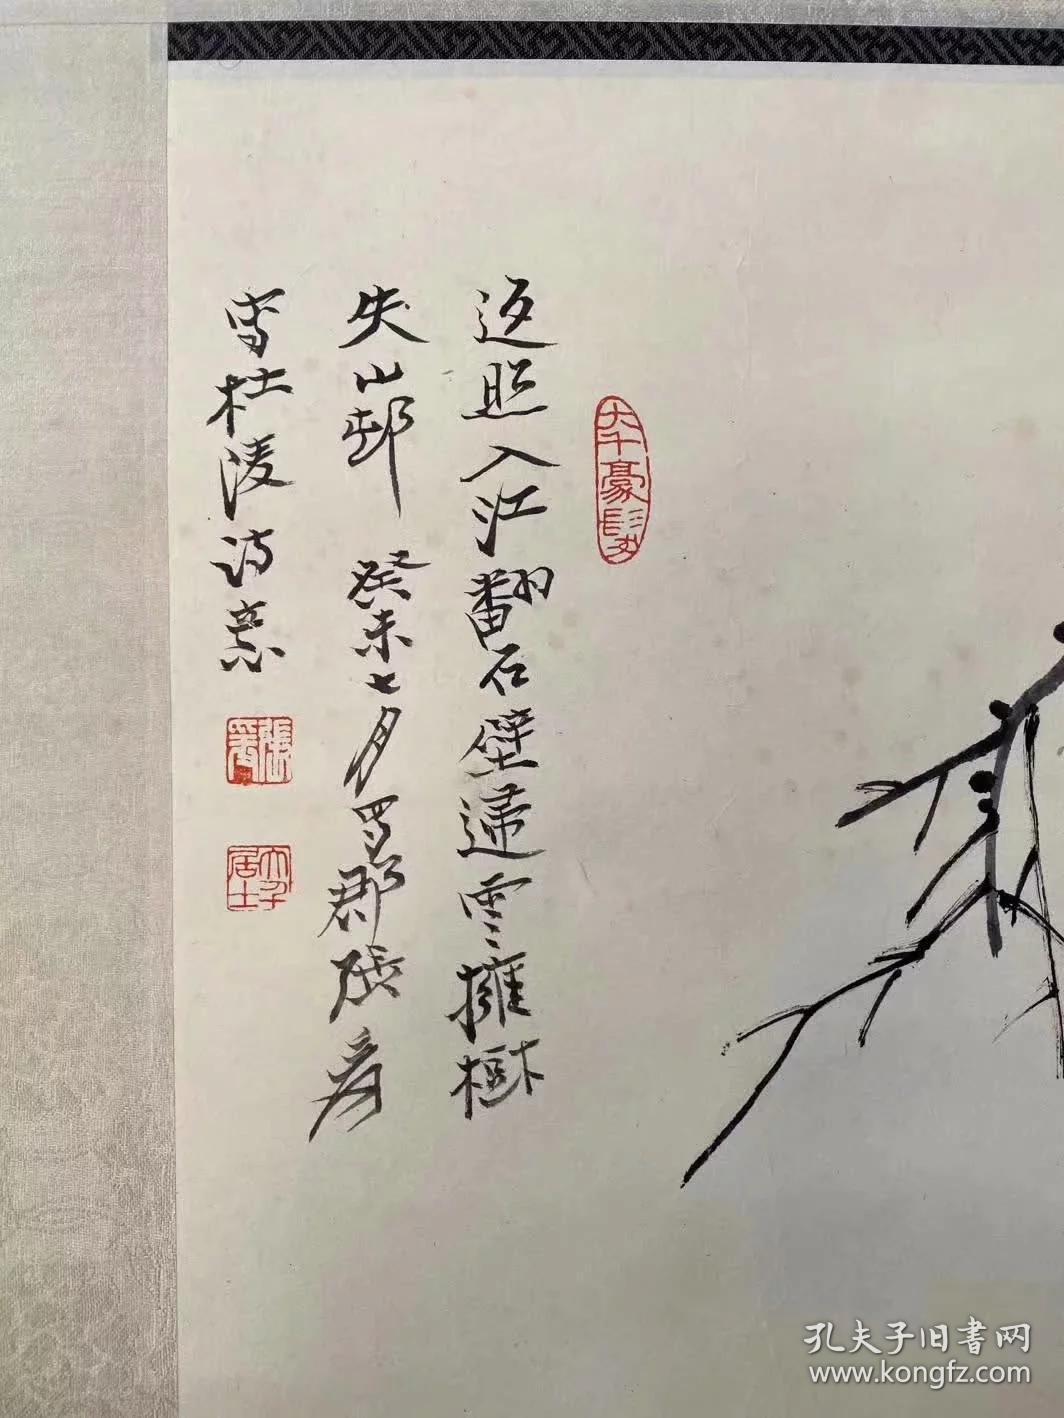 返照入江翻石壁歸雲擁樹
失山邨 癸未七月蜀郡張爰
寫杜陵詩意
大千豪髮
張爰
大千居士
孔夫子旧书网
www.kongfz.com